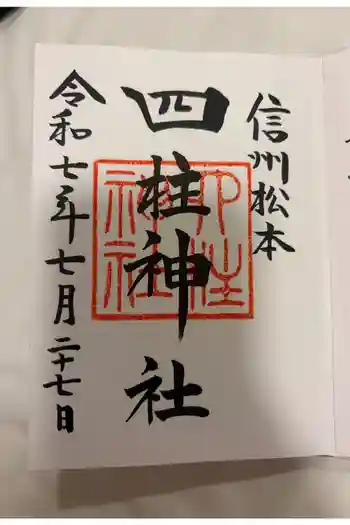 信州松本
四柱神社
令和七年七月二十七日
四柱
神社